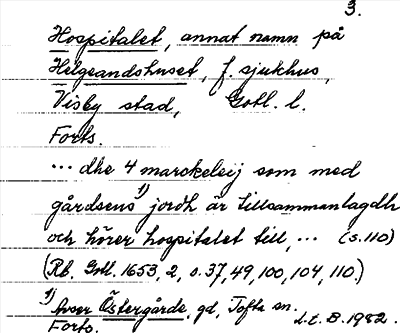 3.
Hospitalet, annat namn på
Helgeandshuset, f. sjukhus,
Visby stad, Gotl. l.
Forts.
... dhe 4 marskeleij som med
gårdsens 1) jordh är tillsammanlagdh
och hörer hospitalet till, ... (s. 110)
(Rb. Gotl. 1653, 2, s. 37, 49, 100, 104, 110.)
1) Avser Östergårde, gd, Tofta sn.
Forts. L.E. B. 1982.